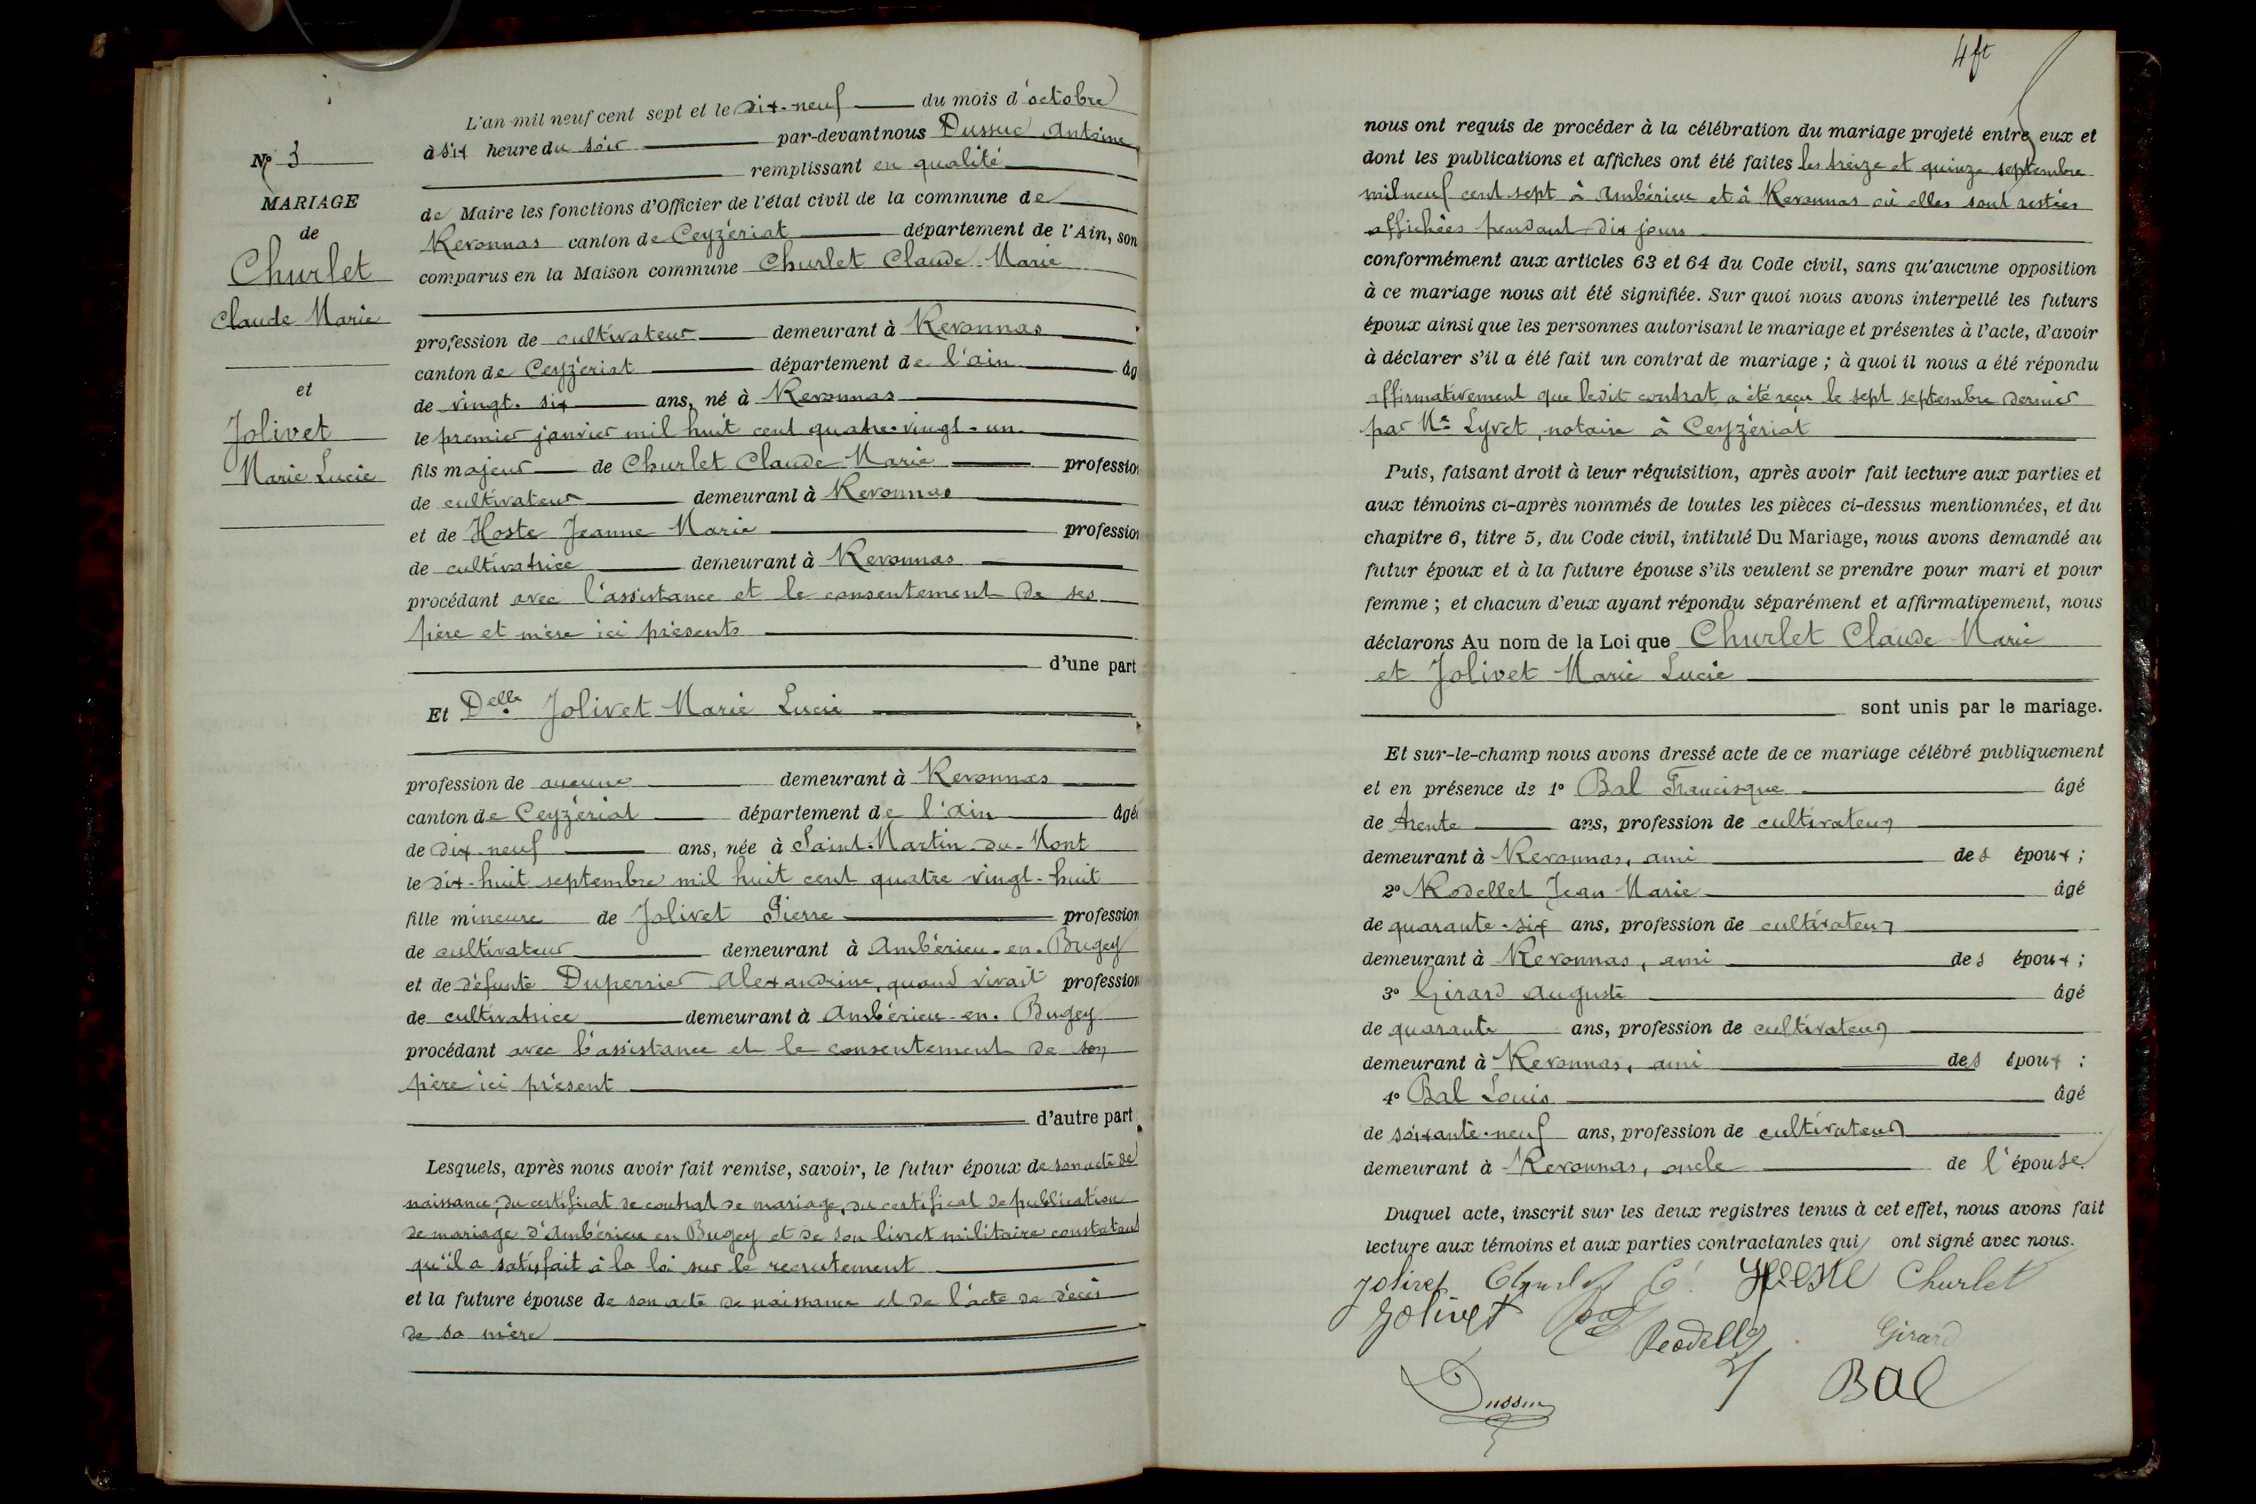 Nº 3
MARIAGE
de
Churlet
Claude Marie
et
Jolivet
Marie Lucie
L'an mil neuf cent sept et le dix-neuf du mois d'octobre
à six heure du soir par-devant nous Dussuc Antoine
remplissant en qualité
de Maire les fonctions d'Officier de l'état civil de la commune de
Revonnas canton de Ceyzériat département de l'Ain, son
comparus en la Maison commune Churlet Claude Marie
profession de cultivateur demeurant à Revonnas
canton de Ceyzériat département de l'ain âg
de vingt-six ans, né à Revonnas
le premier janvier mil huit cent quatre-vingt-un
fils majeur de Churlet Claude Marie profession
de cultivateur demeurant à Revonnas
et de Hoste Jeanne Marie profession
de cultivatrice demeurant à Revonnas
procédant avec l'assistance et le consentement de ses
père et mère ici présents
d'une part
Et Delle Jolivet Marie Lucie
profession de aucune demeurant à Revonnas
canton de Ceyzériat département de l'Ain âgé
de dix-neuf ans, née à Saint-Martin-du-Mont
le dix-huit septembre mil huit cent quatre vingt-huit
fille mineure de Jolivet Pierre profession
de cultivateur demeurant à Ambérieu-en-Bugey
et de défunte Duperrier Alexandrine, quand vivait profession
de cultivatrice demeurant à Ambérieu-en-Bugey
procédant avec l'assistance et le consentement de son
père ici présent
d'autre part
Lesquels, après nous avoir fait remise, savoir, le futur époux de son acte de
naissance, du certificat de contrat de mariage, du certificat de publication
de mariage d'Ambérieu en Bugey et de son livret militaire constatant
qu'il a satisfait à la loi sur le recrutement
et la future épouse de son acte de naissance et de l'acte de décès
de sa mère
nous ont requis de procéder à la célébration du mariage projeté entre eux et
dont les publications et affiches ont été faites les treize et quinze septembre
mil neuf cent sept à Ambérieu et à Revonnas où elles sont restées
affichées pendant dix jours
conformément aux articles 63 et 64 du Code civil, sans qu'aucune opposition
à ce mariage nous ait été signifiée. Sur quoi nous avons interpellé les futurs
époux ainsi que les personnes autorisant le mariage et présentes à l'acte, d'avoir
à déclarer s'il a été fait un contrat de mariage ; à quoi il nous a été répondu
affirmativement que ledit contrat a été reçu le sept septembre dernier
par Me Lyvet, notaire à Ceyzériat
Puis, faisant droit à leur réquisition, après avoir fait lecture aux parties et
aux témoins ci-après nommés de toutes les pièces ci-dessus mentionnées, et du
chapitre 6, titre 5, du Code civil, intitulé Du Mariage, nous avons demandé au
futur époux et à la future épouse s'ils veulent se prendre pour mari et pour
femme ; et chacun d'eux ayant répondu séparément et affirmativement, nous
déclarons Au nom de la Loi que Churlet Claude Marie
et Jolivet Marie Lucie
sont unis par le mariage.
Et sur-le-champ nous avons dressé acte de ce mariage célébré publiquement
et en présence de 1º Bal Francisque âgé
de trente ans, profession de cultivateur
demeurant à Revonnas, ami des époux ;
2º Rodellet Jean Marie âgé
de quarante-six ans, profession de cultivateur
demeurant à Revonnas, ami des époux ;
3º Girard Auguste âgé
de quarante ans, profession de cultivateur
demeurant à Revonnas, ami des époux ;
4º Bal Louis âgé
de soixante-neuf ans, profession de cultivateur
demeurant à Revonnas, oncle de l'épouse
Duquel acte, inscrit sur les deux registres tenus à cet effet, nous avons fait
lecture aux témoins et aux parties contractantes qui ont signé avec nous.
Jolivet Churlet C. Hoste Churlet
Jolivet Girard
Bal
Dussuc